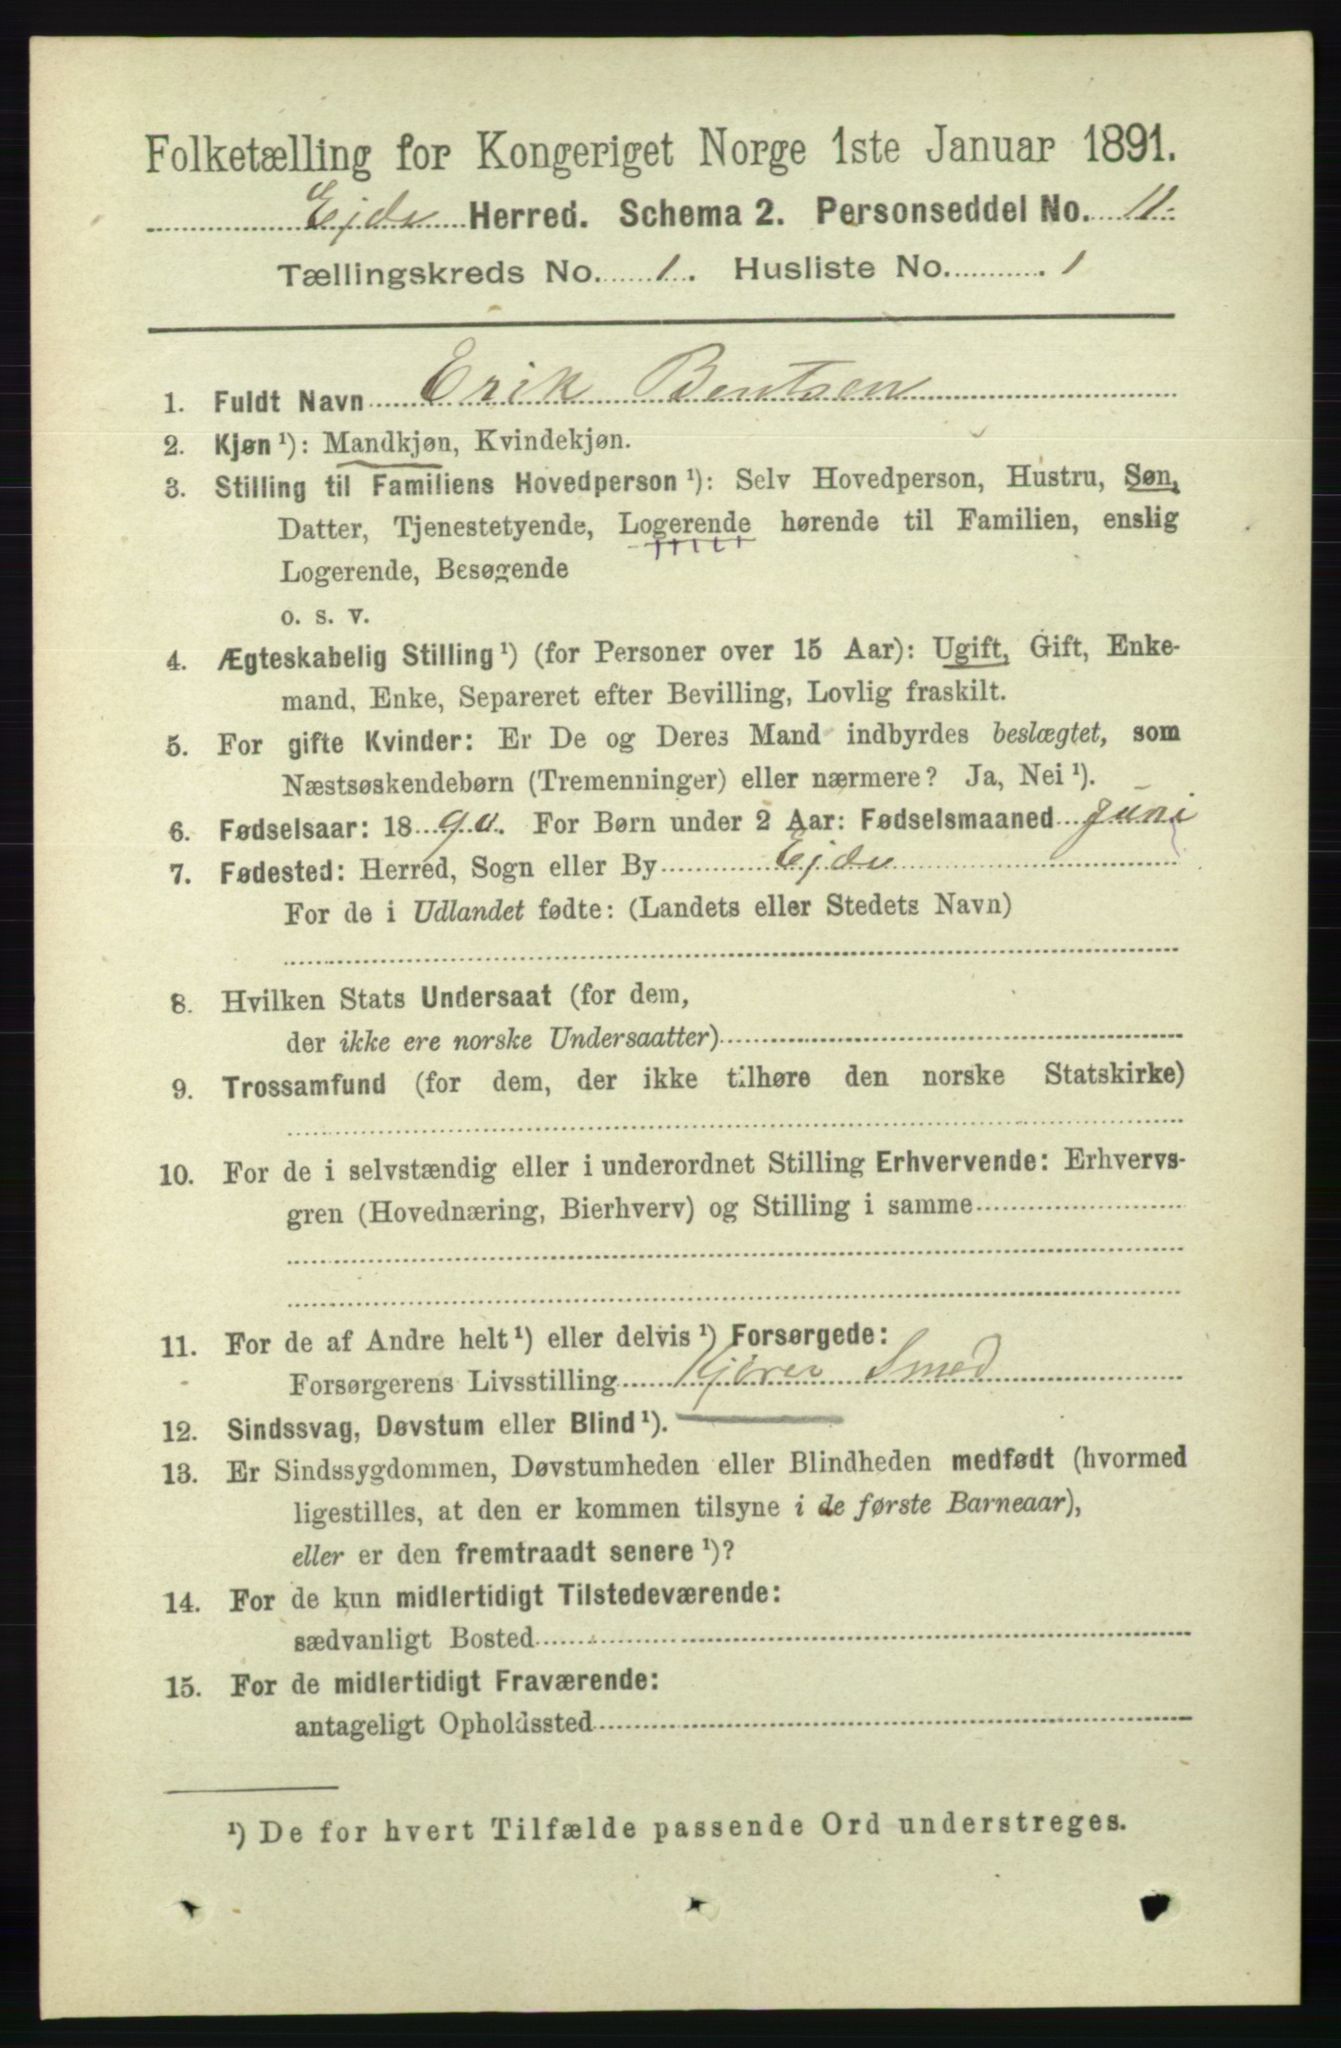 Folketælling for Kongeriget Norge 1ste Januar 1891.
Ejde Herred. Schema 2. Personseddel No. 11.
Tællingskreds No. 1. Husliste No. 1
1. Fuldt Navn Erik Bentsen
2. Kjøn ¹): Mandkjøn, Kvindekjøn.
3. Stilling til Familiens Hovedperson ¹): Selv Hovedperson, Hustru, Søn,
Datter, Tjenestetyende, Logerende hørende til Familien, enslig
Logerende, Besøgende
o. s. v.
4. Ægteskabelig Stilling ¹) (for Personer over 15 Aar): Ugift, Gift, Enke-
mand, Enke, Separeret efter Bevilling, Lovlig fraskilt.
5. For gifte Kvinder: Er De og Deres Mand indbyrdes beslægtet, som
Næstsøskendebørn (Tremenninger) eller nærmere? Ja, Nei ¹).
6. Fødselsaar: 1890. For Børn under 2 Aar: Fødselsmaaned Juni
7. Fødested: Herred, Sogn eller By Ejde
For de i Udlandet fødte: (Landets eller Stedets Navn)
8. Hvilken Stats Undersaat (for dem,
der ikke ere norske Undersaatter)
9. Trossamfund (for dem, der ikke tilhøre den norske Statskirke)
10. For de i selvstændig eller i underordnet Stilling Erhvervende: Erhvervs-
gren (Hovednæring, Bierhverv) og Stilling i samme
11. For de af Andre helt ¹) eller delvis ¹) Forsørgede:
Forsørgerens Livsstilling Smed
12. Sindssvag, Døvstum eller Blind ¹).
13. Er Sindssygdommen, Døvstumheden eller Blindheden medfødt (hvormed
ligestilles, at den er kommen tilsyne i de første Barneaar),
eller er den fremtraadt senere ¹)?
14. For de kun midlertidigt Tilstedeværende:
sædvanligt Bosted
15. For de midlertidigt Fraværende:
antageligt Opholdssted
¹) De for hvert Tilfælde passende Ord understreges.